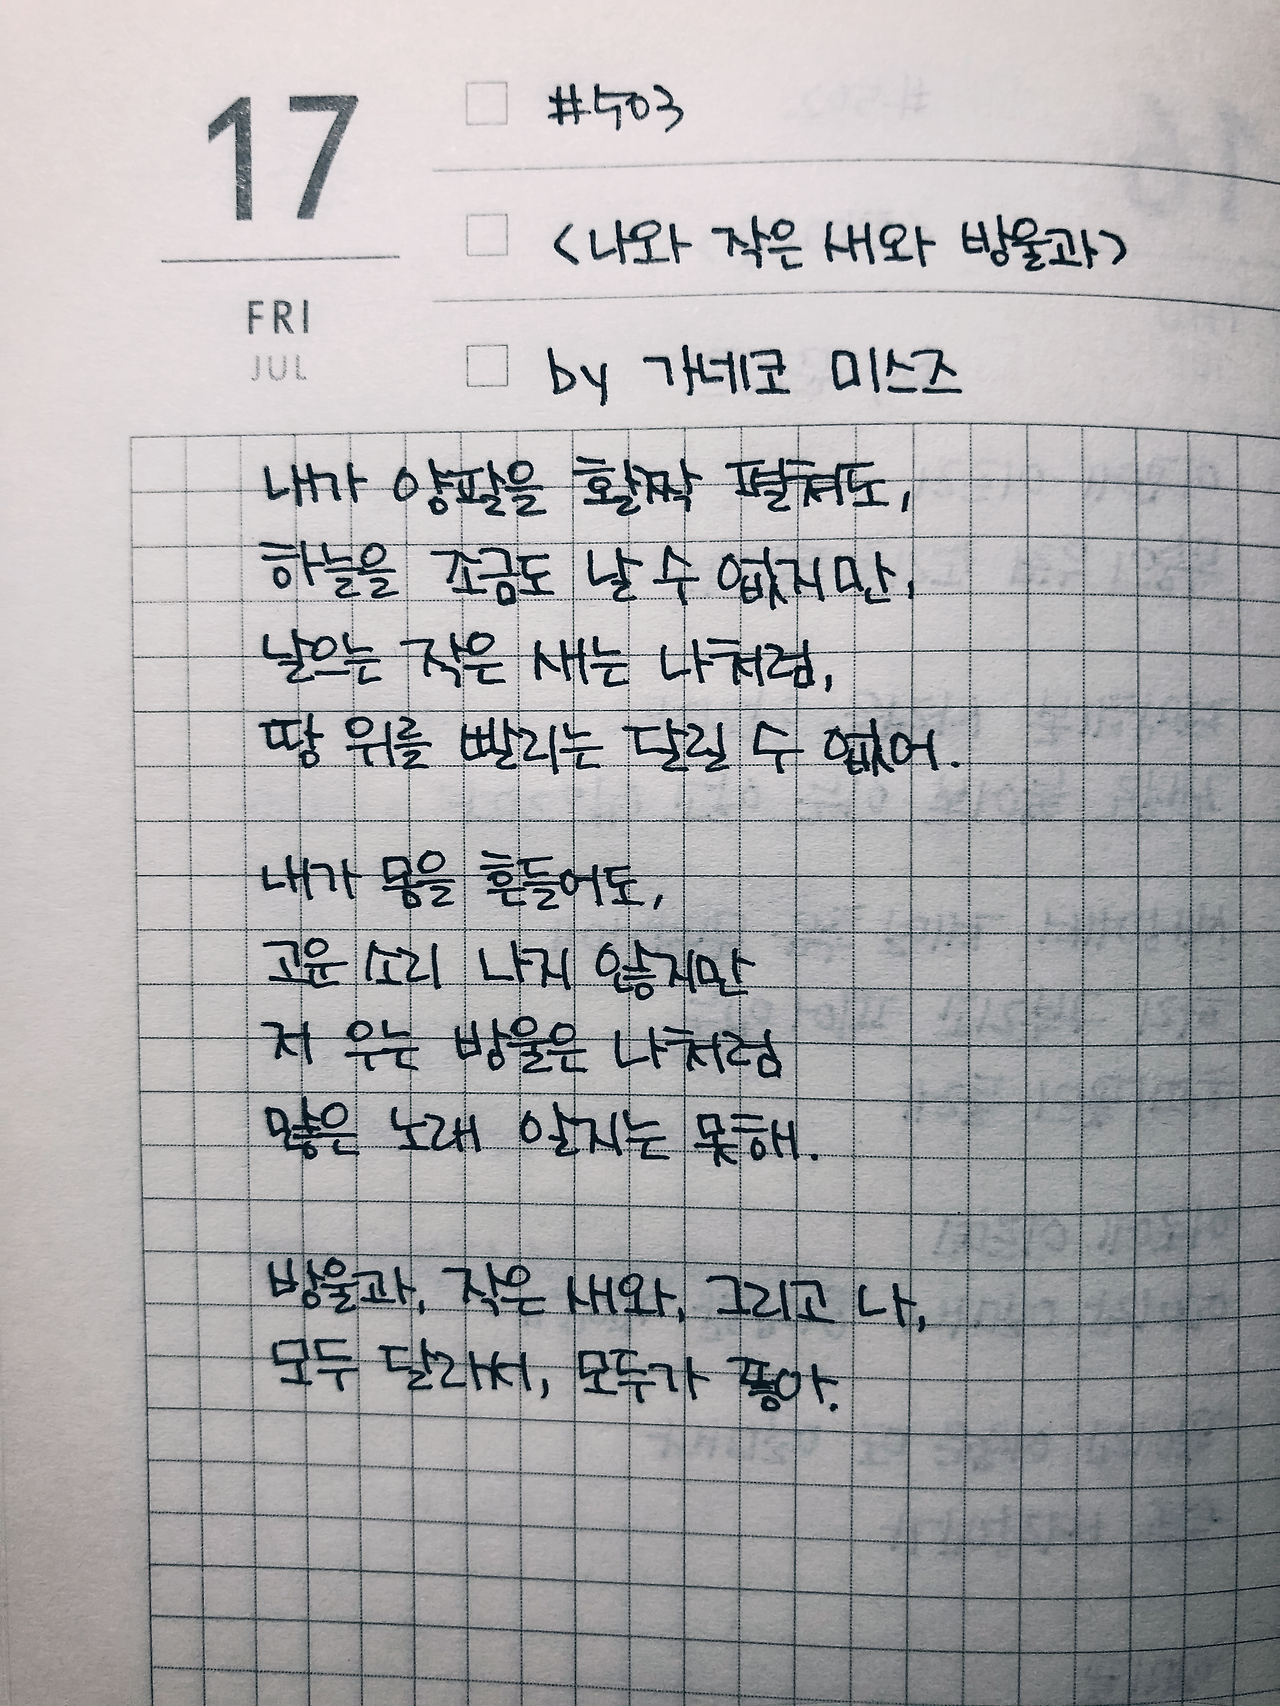 17
FRI
JUL
#503
<나와 작은 새와 방울과>
by 가네코 미스즈
내가 양팔을 활짝 펼쳐도,
하늘을 조금도 날 수 없지만,
날으는 작은 새는 나처럼,
땅 위를 빨리는 달릴 수 없어.
내가 몸을 흔들어도,
고운 소리 나지 않지만
저 우는 방울은 나처럼
많은 노래 알지는 못해.
방울과, 작은 새와, 그리고 나,
모두 달라서, 모두가 좋아.